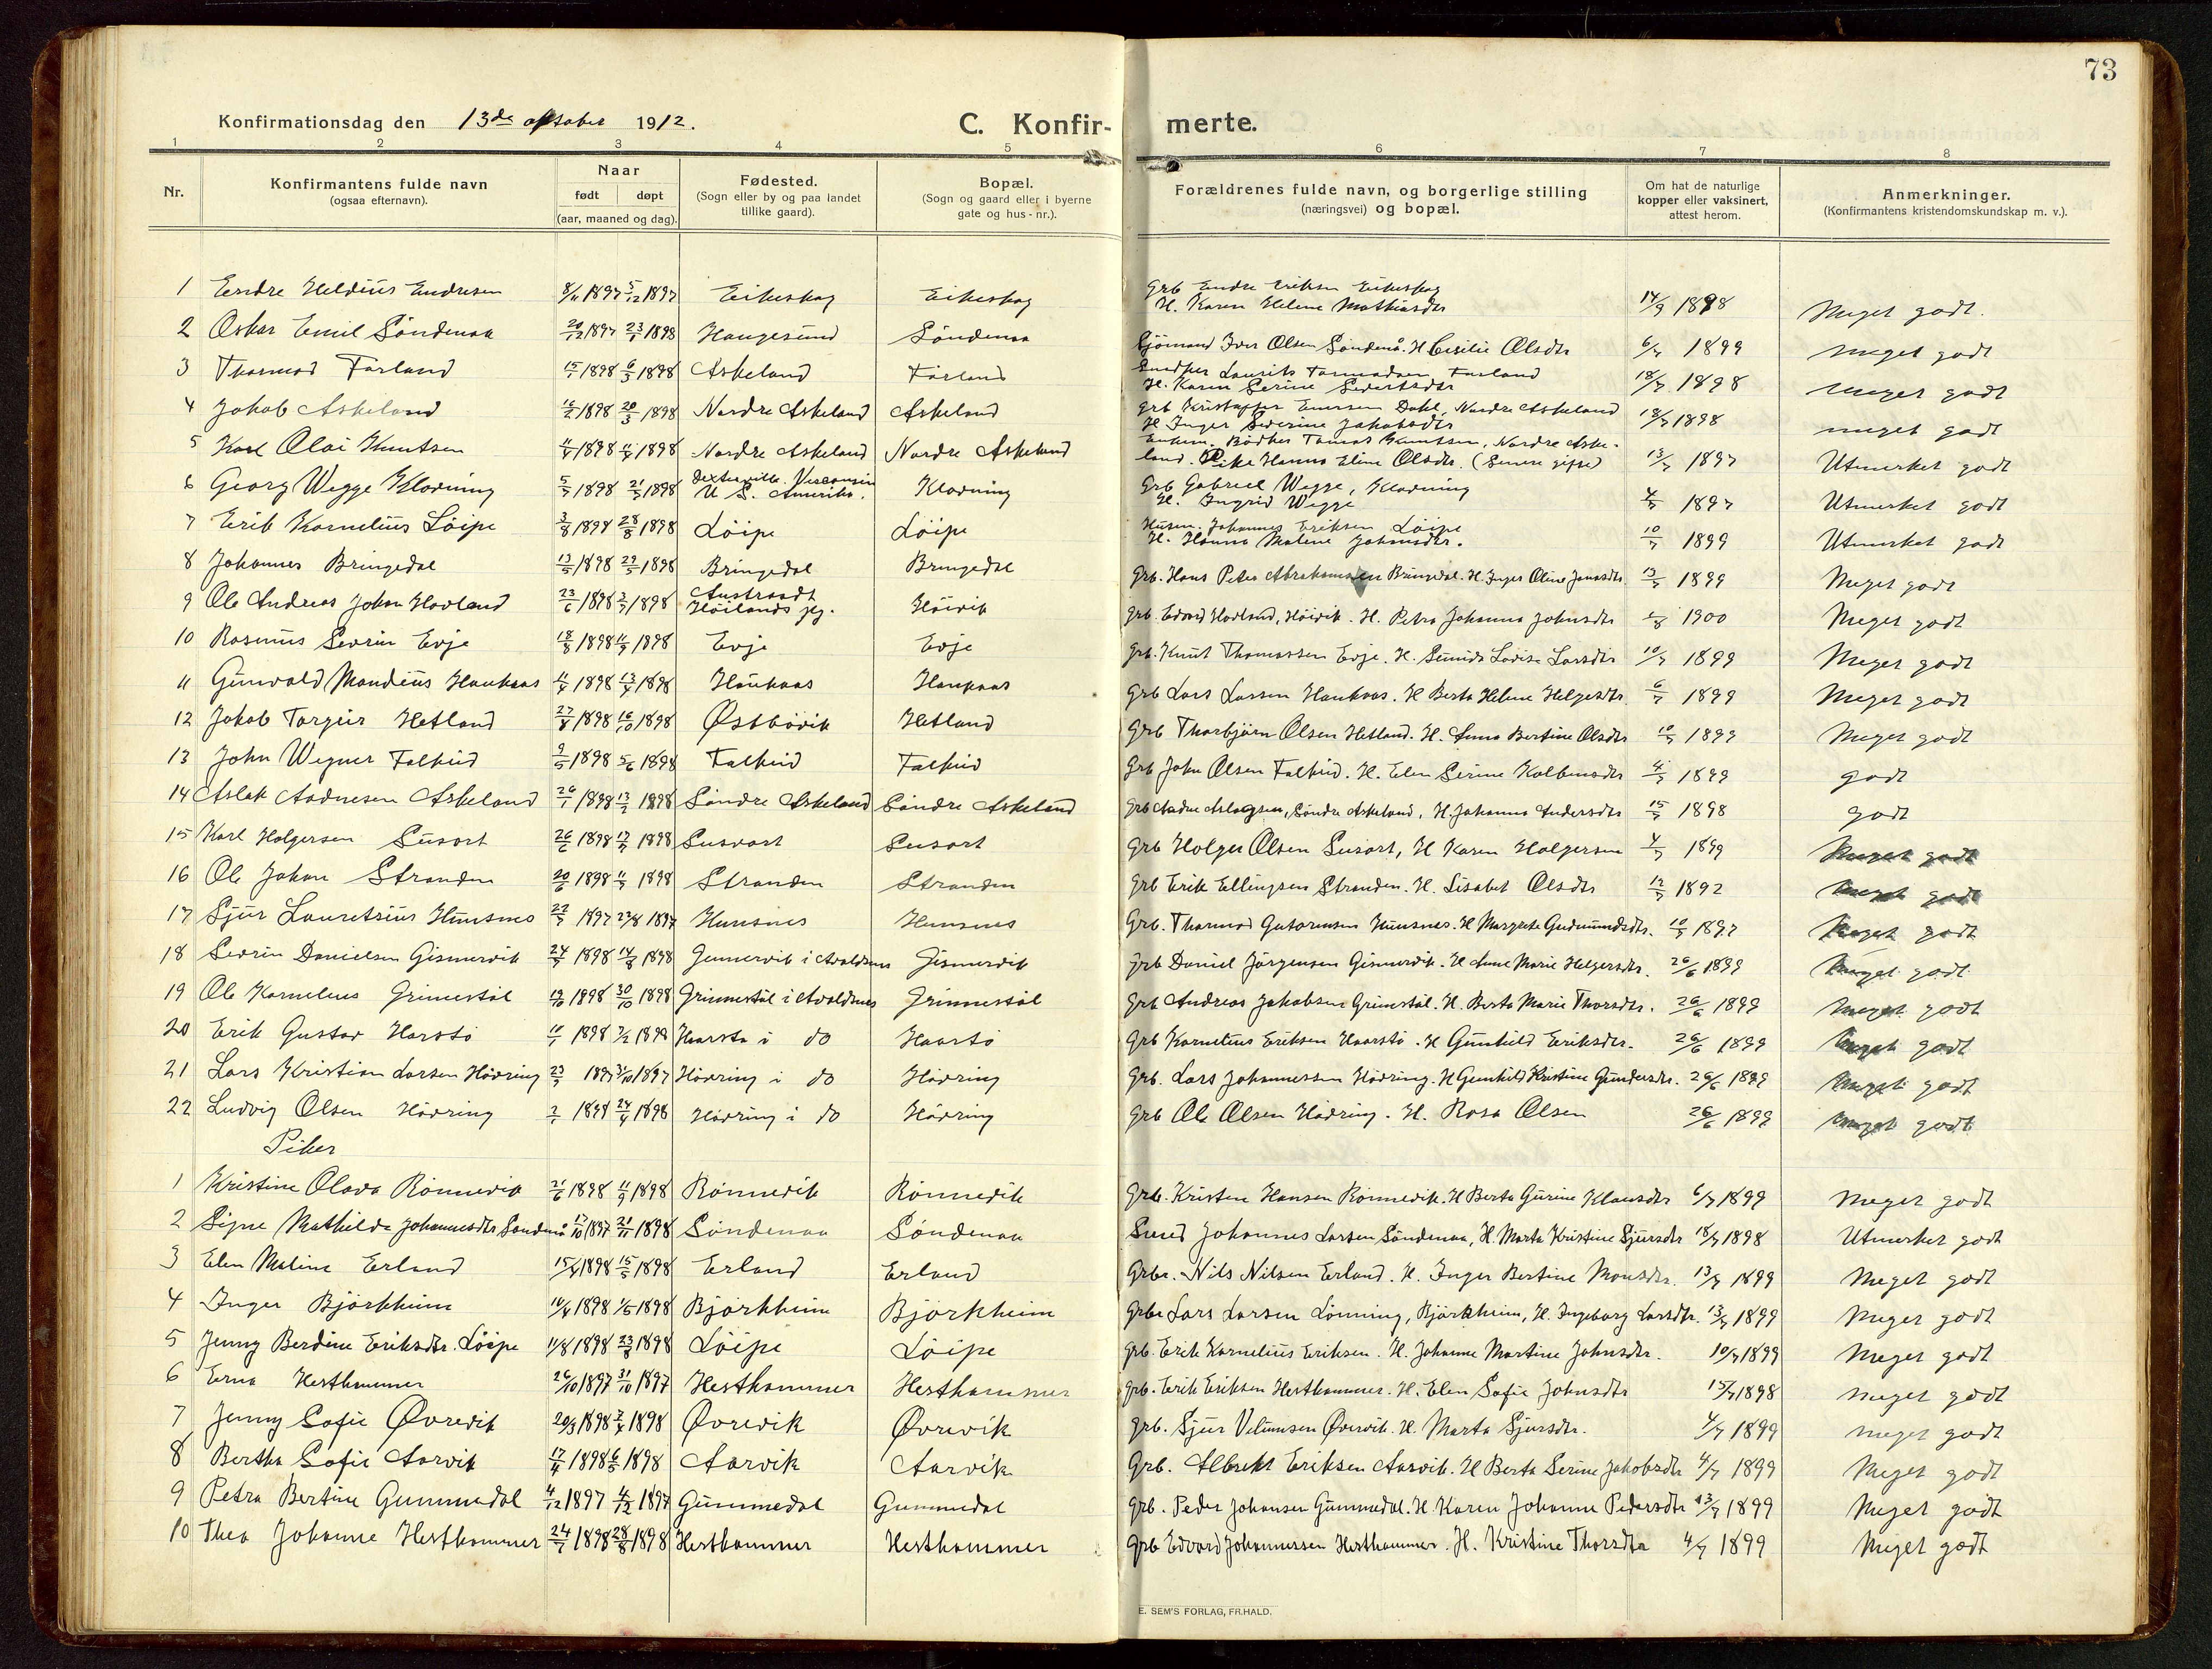 73
Konfirmationsdag den 13de oktober 1912. C. Konfir- merte.
1 2 3 4 5 6 7 8
Nr. Konfirmantens fulde navn (ogsaa efternavn). Naar født døpt (aar, maaned og dag). Fødested. (Sogn eller by og paa landet tillike gaard). Bopæl. (Sogn og gaard eller i byerne gate og hus-nr.). Forældrenes fulde navn, og borgerlige stilling (næringsvei) og bopæl. Om hat de naturlige kopper eller vaksinert, attest herom. Anmerkninger. (Konfirmantens kristendomskundskap m. v.).
1 Endre Heldius Endresen 8/11 1897 5/12 1897 Eikeskog Eikeskog Grb Endre Eriksen Eikeskog H. Karen Helene Mathiasdtr 14/9 1898 Meget godt.
2 Oskar Emil Söndenaa 20/12 1897 23/1 1898 Haugesund Söndenaa Sjömand Iver Olsen Söndenå. H Cesilie Olsdtr 6/7 1899 meget godt
3 Thormod Førland 15/1 1898 6/3 1898 Askeland Førland Laurits Tormodsen Førland H. Karen Serine Sivertsdtr 18/7 1898 meget godt
4 Jakob Askeland 16/2 1898 20/3 1898 Nordre Askeland Askeland Grb Kristoffer Enersen Dahl, Nordre Askeland H Inger Severine Jakobsdtr 18/7 1898 meget godt
5 Karl Olai Knutsen 1898 1898 Nordre Askeland Nordre Askeland Enkem. Bödker Tomas Knutsen, Nordre Askeland. Pike Hanna Eline Olsdtr. (Senere gifte) 13/7 1897 Utmerket godt
6 Georg Wegge Klovning 5/7 1898 21/5 1898 Dexterville Visconsin U. S. Amerika. Klovning Grb Gabriel Wegge, Klovning H. Ingrid Wegge 1897 Utmerket godt
7 Erik Kornelius Löipe 3/8 1898 28/8 1898 Löipe Löipe Husm. Johannes Eriksen Löipe H. Hanna Malene Johnsdtr. 10/7 1899 Utmerket godt
8 Johannes Bringedal 13/5 1898 29/5 1898 Bringedal Bringedal Grb. Hans Peter Abrahamsen Bringedal. H. Inger Oline Jonasdtr 13/7 1899 Meget godt
9 Ole Andreas Johan Hovland 23/6 1898 3/7 1898 Austraadt Höilands pg. Höivik Grb. Edvard Hovland, Höivik. H. Petra Johanna Johnsdtr 1900 Meget godt
10 Rasmus Sevrin Evje 18/8 1898 11/9 1898 Evje Evje Grb. Knut Thomassen Evje. H. Lovise Larsdtr 10/7 1899 Meget godt
11 Gunvald Mandius Haukaas 1898 13/4 1898 Haukaas Haukaas Grb Lars Larsen Haukaas. H Berta Helene Helgesdtr 6/7 1899 Meget godt
12 Jakob Torgeir Hetland 27/8 1898 16/10 1898 Østbövik Hetland Grb Thorbjörn Olsen Hetland. H. Anna Bertine Olsdtr 10/7 1899 Meget godt
13 John Wegner Falkeid 9/5 1898 5/6 1898 Falkeid Falkeid Grb John Olsen Falkeid. H. Elen Serine Kolbensdtr 4/7 1899 godt
14 Aslak Aadnesen Askeland 26/1 1898 13/2 1898 Söndre Askeland Söndre Askeland Grb Aadne Aslagsen, Söndre Askeland, H. Johanna Andersdtr 15/7 1898 godt
15 Karl Holgersen Susort 26/6 1898 17/7 1898 Susvort Susort Grb Holger Olsen Susort, H Karen Holgersen 4/7 1899 Meget godt
16 Ole Johan Stranden 20/6 1898 11/9 1898 Stranden Stranden Grb Erik Ellingsen Stranden. H. Lisabet Olsdtr 12/7 1892 Meget godt
17 Sjur Lauretsius Hunsnes 22/7 1897 22/8 1897 Hunsnes Hunsnes Grb. Thormod Gutormsen Hunsnes. H Margrete Gudmundsdtr. 10/7 1897 Meget godt
18 Sevrin Danielsen Gismervik 24/7 1898 14/8 1898 Gismervik i Avaldsnes Gismervik grb Daniel Jörgensen Gismervik. H Anne Marie Helgesdtr. 26/6 1899 Meget godt
19 Ole Kornelius Grinnestöl 19/10 1898 30/10 1898 Grinnestöl i Avaldsnes Grinnestöl Grb Andreas Jakobsen Grinestöl. H. Berta Marie Thorsdtr. 26/6 1899 Meget godt
20 Erik Gustav Harstö 1898 1/2 1899 Haarstö i do Haarstö Grb Kornelius Eriksen Haarstö. H Gunhild Eriksdtr. 26/6 1899 Meget godt
21 Lars Kristian Larsen Hövring 23/9 1897 31/10 1897 Hövring i do Hövring Grb. Lars Johannessen Hövring. H Gunhild Kristine Gundersdtr. 26/6 1899 Meget godt
22 Ludvig Olsen Hövring 1898 24/4 1898 Hövring i do Hövring Grb Ole Olsen Hövring. H. Rosa Olsen 26/6 1899 Meget godt
Piker
1 Kristine Olava Rönnevik 21/6 1898 11/9 1898 Rönnevik Rönnevik Grb. Kristen Hansen Rönnevik. H Berta Gurine Klausdtr 6/7 1899 Meget godt
2 Signe Mathilde Johannesdtr Söndenå 17/10 1897 21/11 1898 Söndenaa Söndenaa Johannes Larsen Söndenaa, H. Marta Kristine Sjursdtr 18/7 1898 Utmerket godt
3 Elen Maline Erland 15/4 1898 15/5 1898 Erland Erland Grbr. Nils Nilsen Erland. H. Inger Bertine Monsdtr. 13/7 1899 Meget godt
4 Inger Björkheim 10/4 1898 1/5 1898 Björkheim Björkheim Grbr Lars Larsen Lönning, Björkheim, H. Ingeborg Larsdtr. 13/7 1899 Meget godt
5 Jenny Berdine Eriksdtr. Löipe 11/8 1898 23/8 1898 Löipe Löipe Grb. Erik Kornelius Eriksen. H. Johanne Martine Johnsdtr. 10/7 1899 Meget godt
6 Erna Hesthammer 26/10 1897 31/10 1897 Hesthammer Hesthammer Grb. Erik Eriksen Hesthammer. H. Elen Sofie Johnsdtr 15/7 1898 meget godt
7 Jenny Sofie Øvrevik 20/3 1898 1898 Øvrevik Øvrevik Grb. Sjur Velumsen Øvrevik. H. Marta Sjursdtr. 4/7 1899 meget godt
8 Bertha Sofie Aarvik 17/4 1898 6/5 1898 Aarvik Aarvik Grb. Albrekt Eriksen Aarvik. H Berta Serine Jakobsdtr 4/7 1899 Meget godt
9 Petra Bertine Gummedal 4/12 1897 1897 Gummedal Gummedal Grb. Peder Johansen Gummedal. H. Karen Johanne Pedersdtr 13/7 1899 Meget godt
10 Thea Johanne Hesthammer 24/7 1898 28/8 1898 Hesthammer Hesthammer Grb Edvard Johannessen Hesthammer. H. Kristine Thorsdtr 4/7 1899 Meget godt
E. SEM'S FORLAG, FR.HALD.